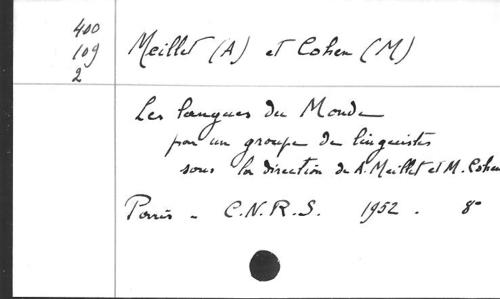 400
109
2
Meillet (A) et Cohen (M)
Les langues du Monde
par un groupe de linguistes
sous la direction de A. Meillet et M. Cohen
Paris - C.N.R.S. 1952. 8°